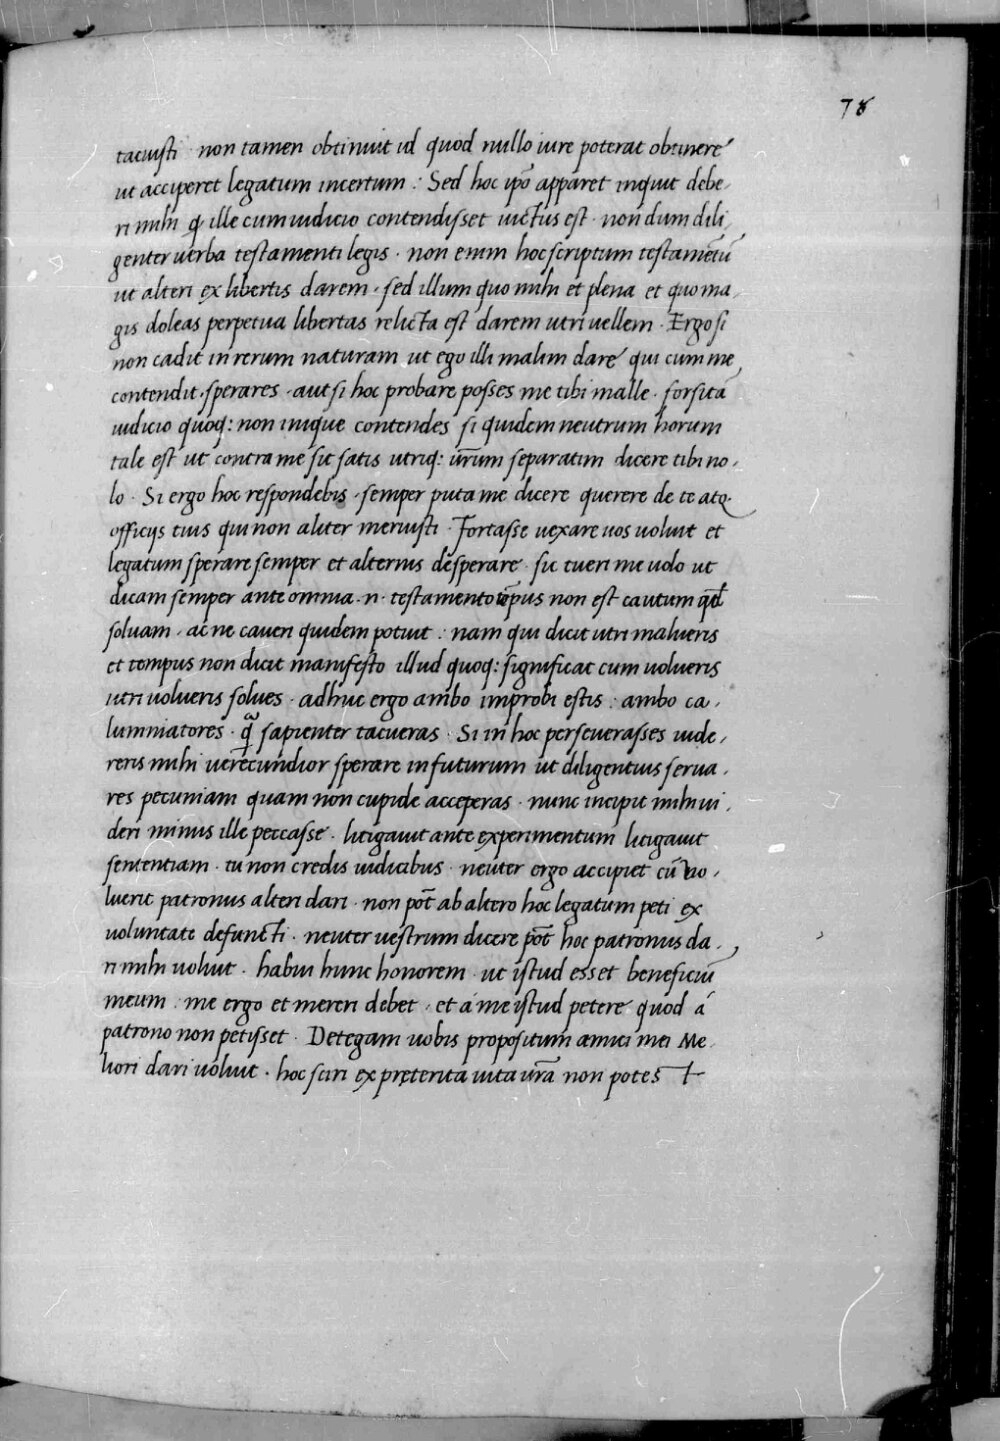 78
tacuisti · non tamen obtinuit id quod nullo iure poterat obtinere
ut acciperet legatum incertum : Sed hoc ip̄o apparet inquit debe-
ri mihi q̄ ille cum iudicio contendisset uictus est · non dum dili-
genter uerba testamenti legis · non enim hoc scriptum testamētū
ut alteri ex libertis darem · sed illum quo mihi et plena et quo ma-
gis doleas perpetua libertas relicta est darem utri uellem · Ergo si
non cadit in rerum naturam ut ego illi malim dare qui cum me
contendit, sperares · aut si hoc probare posses me tibi malle · forsitā
iudicio quoq: non inique contendes si quidem neutrum horum
tale est ut contra me sit satis utriq: ur̄um separatim dicere tibi no-
lo · Si ergo hoc respondebis · semper puta me dicere querere de te atq.
officijs tuis qui non aliter meruisti · Fortasse uexare uos uoluit et
legatum sperare semper et alternis desperare · sic tueri me uolo ut
dicam semper ante omnia · n · testamento tēpus non est cautum q̄d
soluam · ac ne caueri quidem potuit : nam qui dicit utri malueris
et tempus non dicit manifesto illud quoq: significat cum uolueris
utri uolueris solues · adhuc ergo ambo improbi estis : ambo ca-
lumniatores · q̄ sapienter tacueras · Si in hoc perseuerasses uide-
reris mihi uerecundior sperare in futurum ut diligentius serua-
res pecuniam quam non cupide acceperas · nunc incipit mihi ui-
deri minus ille peccasse · litigauit ante experimentum litigauit
sententiam · tu non credis iudicibus · neuter ergo accipiet cū uo-
luerit patronus alteri dari · non pōt ab altero hoc legatum peti ex
uoluntate defuncti · neuter uestrum dicere pōt hoc patronus da-
ri mihi uoluit · habui hunc honorem · ut istud esset beneficiū
meum : me ergo et mereri debet · et á me istud petere quod á
patrono non petisset · Detegam uobis propositum amici mei Me-
liori dari uoluit · hoc sciri ex pręterita uita ur̄a non potest